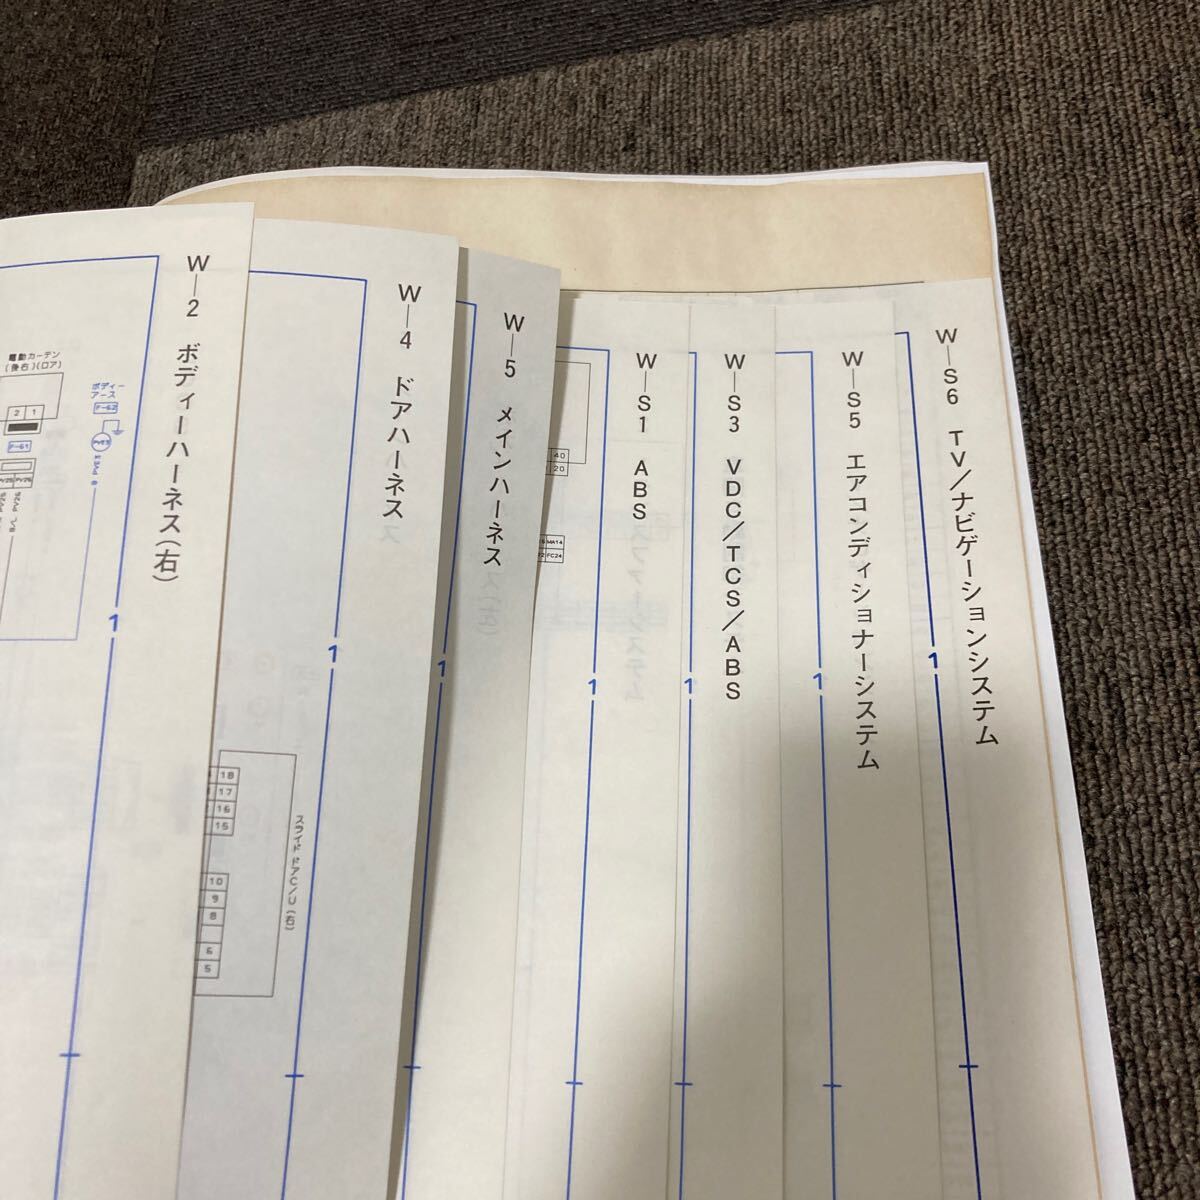 W—2 ボディーハーネス(右)
電動カーテン
(後右)(ロア)
2 1
F-61
ボディー
アース
F-62
1
W—4 ドアハーネス
1
18
17
16
15
10
9
8
6
5
スライドドアC/U(右)
W—5 メインハーネス
1
W—S1 ABS
40
20
MA14
FC24
1
W—S3 VDC/TCS/ABS
1
W—S5 エアコンディショナーシステム
1
W—S6 TV/ナビゲーションシステム
1